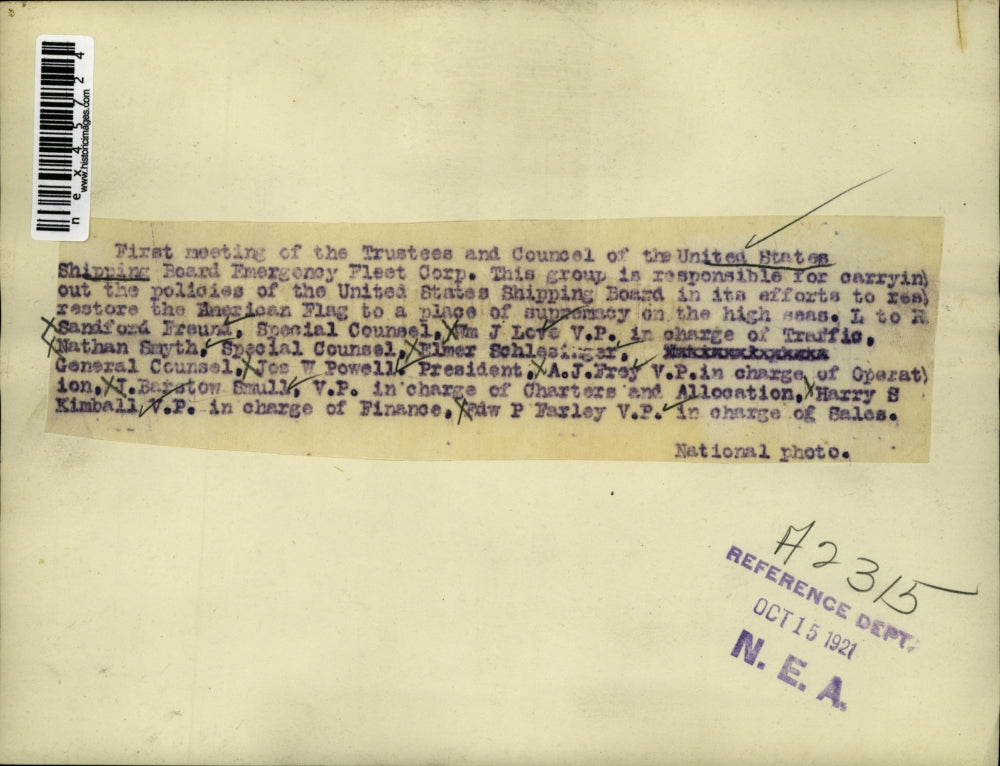 nex45724
www.historicimages.com
First meeting of the Trustees and Councel of the United States
Shipping Board Emergency Fleet Corp. This group is responsible for carryin)
out the policies of the United States Shipping Board in its efforts to res)
restore the American Flag to a place of supremacy on the high seas. L to R
Sandford Freund, Special Counsel, Wm J Love V.P. in charge of Traffic,
Nathan Smyth, Special Counsel, Elmer Schlesinger,
General Counsel, Jos W Powell President, A.J.Frey V.P.in charge of Operat)
ion, J.Barstow Smull, V.P. in charge of Charters and Allocation, Harry S
Kimball V.P. in charge of Finance, Edw P Farley V.P. in charge of Sales.
National photo.
A2315
REFERENCE DEPT.
OCT 15 1921
N. E. A.